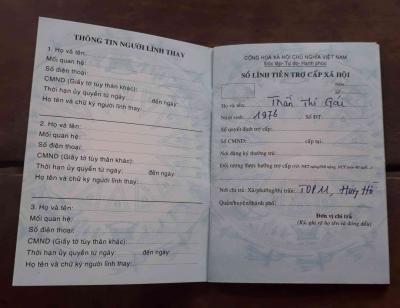 THÔNG TIN NGƯỜI LĨNH THAY
1. Họ và tên:
Mối quan hệ:
Số điện thoại:
CMND (Giấy tờ tùy thân khác):
Thời hạn ủy quyền từ ngày: đến ngày
Họ tên và chữ ký người lĩnh thay:
2. Họ và tên:
Mối quan hệ:
Số điện thoại:
CMND (Giấy tờ tùy thân khác):
Thời hạn ủy quyền từ ngày: đến ngày
Họ tên và chữ ký người lĩnh thay:
3. Họ và tên:
Mối quan hệ:
Số điện thoại:
CMND (Giấy tờ tùy thân khác):
Thời hạn ủy quyền từ ngày: đến ngày:
Họ tên và chữ ký người lĩnh thay:
CỘNG HOÀ XÃ HỘI CHỦ NGHĨA VIỆT NAM
Độc lập- Tự do- Hạnh phúc
SỔ LĨNH TIỀN TRỢ CẤP XÃ HỘI
Số:
Họ và tên: Trần Thị Gái
Năm sinh: 1976 Số ĐT:
Số quyết định trợ cấp:
Số CMND: cấp tại:
Nơi đăng ký thường trú:
Đối tượng được hưởng trợ cấp
Nơi chi trả: Xã/phường/thị trấn: TDP 11,
Quận/huyện/thành phố:
Đơn vị chi trả
(Ký, ghi rõ họ tên và đóng dấu)